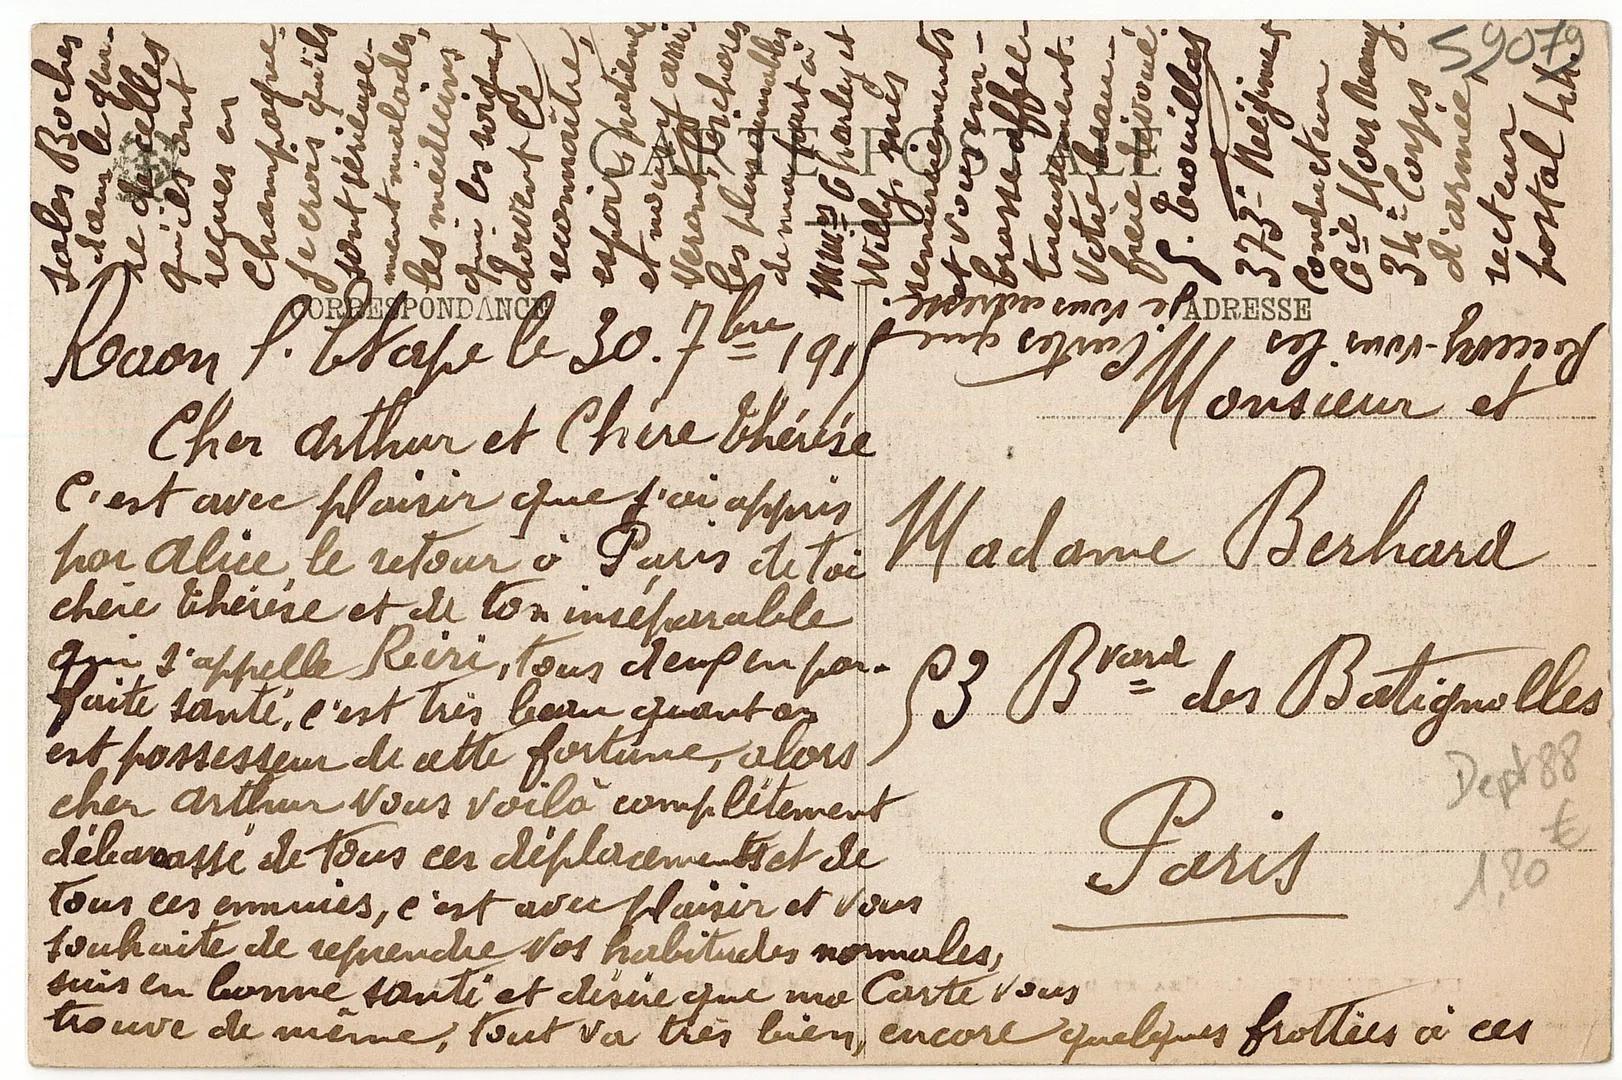 CARTE POSTALE
CORRESPONDANCE
ADRESSE
Raon l'Etape le 30. 7bre 1915
Cher Arthur et Chère Thérèse
C'est avec plaisir que j'ai appris
par Alice, le retour à Paris de toi
chère Thérèse et de ton inséparable
qui s'appelle Riri, tous deux en par-
faite santé, c'est très beau quant on
est possesseur de cette fortune, alors
cher Arthur vous voilà complètement
débarassé de tous ces déplacements et de
tous ces ennuies, c'est avec plaisir et vous
souhaite de reprendre vos habitudes normales,
suis en bonne santé et désire que ma Carte vous
trouve de même, tout va très bien, encore quelques frottées à ces
sales Boches
dans le gen-
re de celles
qu'ils ont
reçues en
Champagne,
je crois qu'ils
sont sérieuse-
ment malades,
les médecins
qui les soignent
doivent le
reconnaître,
espoir patience
et nous y arri-
verons,
les plus aimables
de ma part à
Mmes Charley et
Willy, mes
remerciements
et vous em-
brasse affec-
tueusement.
Votre beau-
frère dévoué.
G. Trouillas
373e Régiment
Conducteur
Cie Hors Rang.
34e Corps
d'armée,
secteur
postal
Recevez-vous les
Cartes que
je vous adresse.
Monsieur et
Madame Berhard
53 Bvard des Batignolles
Paris
59079
Dept 88
€
1,20